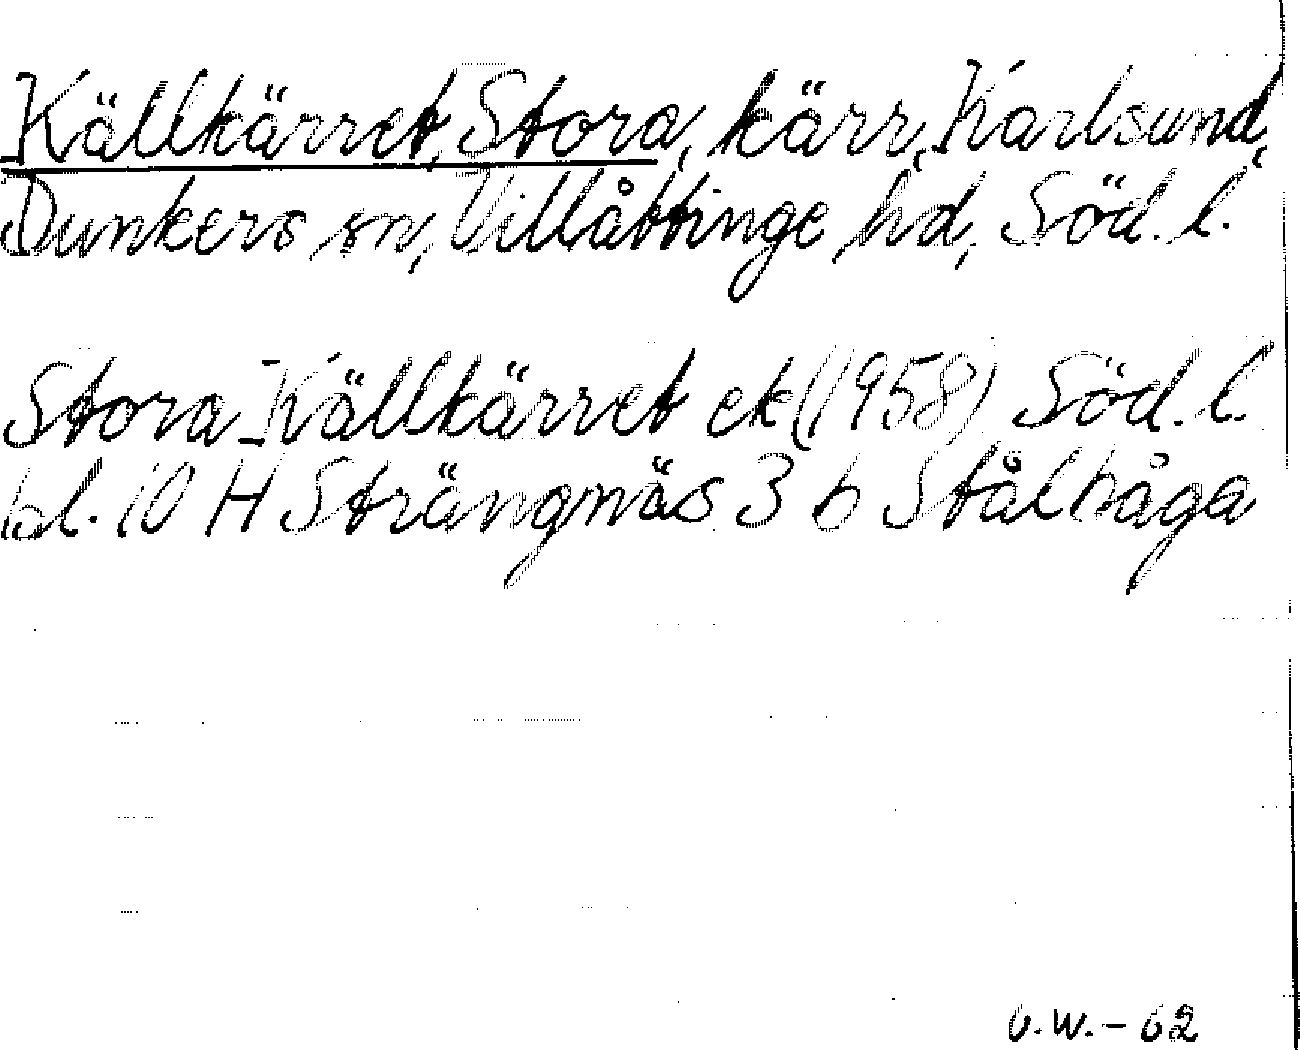 Källkärret, Stora, kärr, Karlsund,
Dunkers sn, Villåttinge hd, Söd. l.
Stora Källkärret ek (1958) Söd. l.
bl. 10 H Strängnäs 3 b Stålhåga
O.W. - 62